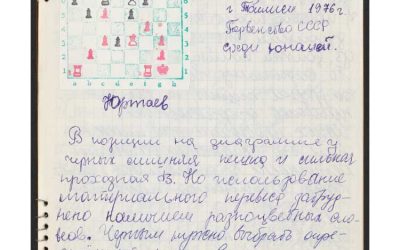 г Тбилиси 1976г
Первенство СССР
среди юношей.
6
5
4
3
2
1
a b c d e f g h
Юртаев
В позиции на диаграмме у
черных лишняя пешка и сильная
проходная В. Но использование
материального перевеса затруд-
нено наличием разноцветных сло-
нов. Черным нужно выбрать